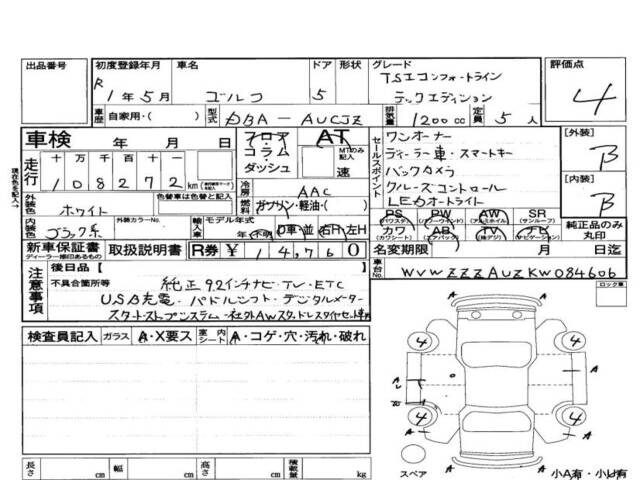 出品番号 初度登録年月 車名 ドア 形状 グレード 評価点
R1年5月 ゴルフ 5 TSIコンフォートライン
テックエディション 4
車歴 自家用・( ) 型式 DBA-AUCJZ 排気量 1200cc 定員 5人
車検 年 月 日 フロア・コラム・ダッシュ AT MTのみ記入 速
走行 十万千百十一 108272km
冷房 AAC
燃料 ガソリン・軽油・( )
セールスポイント
ワンオーナー
ディーラー車・スマートキー
バックカメラ
クルーズコントロール
LEDオートライト
[外装] B
[内装] B
外装色 ホワイト 色替車は色替と記入
内装色 ブラック系 外装カラーNo. 輸入車 モデル年式 年・不明 D車・並 右H・左H
PS (パワステ) PW (パワーウインド) AW (アルミ) SR (サンルーフ)
カワ (カワシート) AB (エアバッグ) TV (純正) ナビ (ナビゲーション)
純正品のみ丸印
新車保証書 ディーラー捺印あるもの 取扱説明書 R券 ¥14,760 名変期限 月 日迄
注意事項 後日品[ ] 車台No. WVWZZZAUZKW084606
不具合箇所等 純正9.2インチナビ・TV・ETC
USB充電・パドルシフト・デジタルメーター
スタートストップシステム・社外AWスタッドレスタイヤセット車両
ロック車
検査員記入 ガラス A・X要ス 室内シート A・コゲ・穴・汚れ・破れ
4 4 4 4
A A A A A A
長さ cm 幅 cm 高さ cm 積載量 kg
スペア
小A有・小U有
現在色を記入→